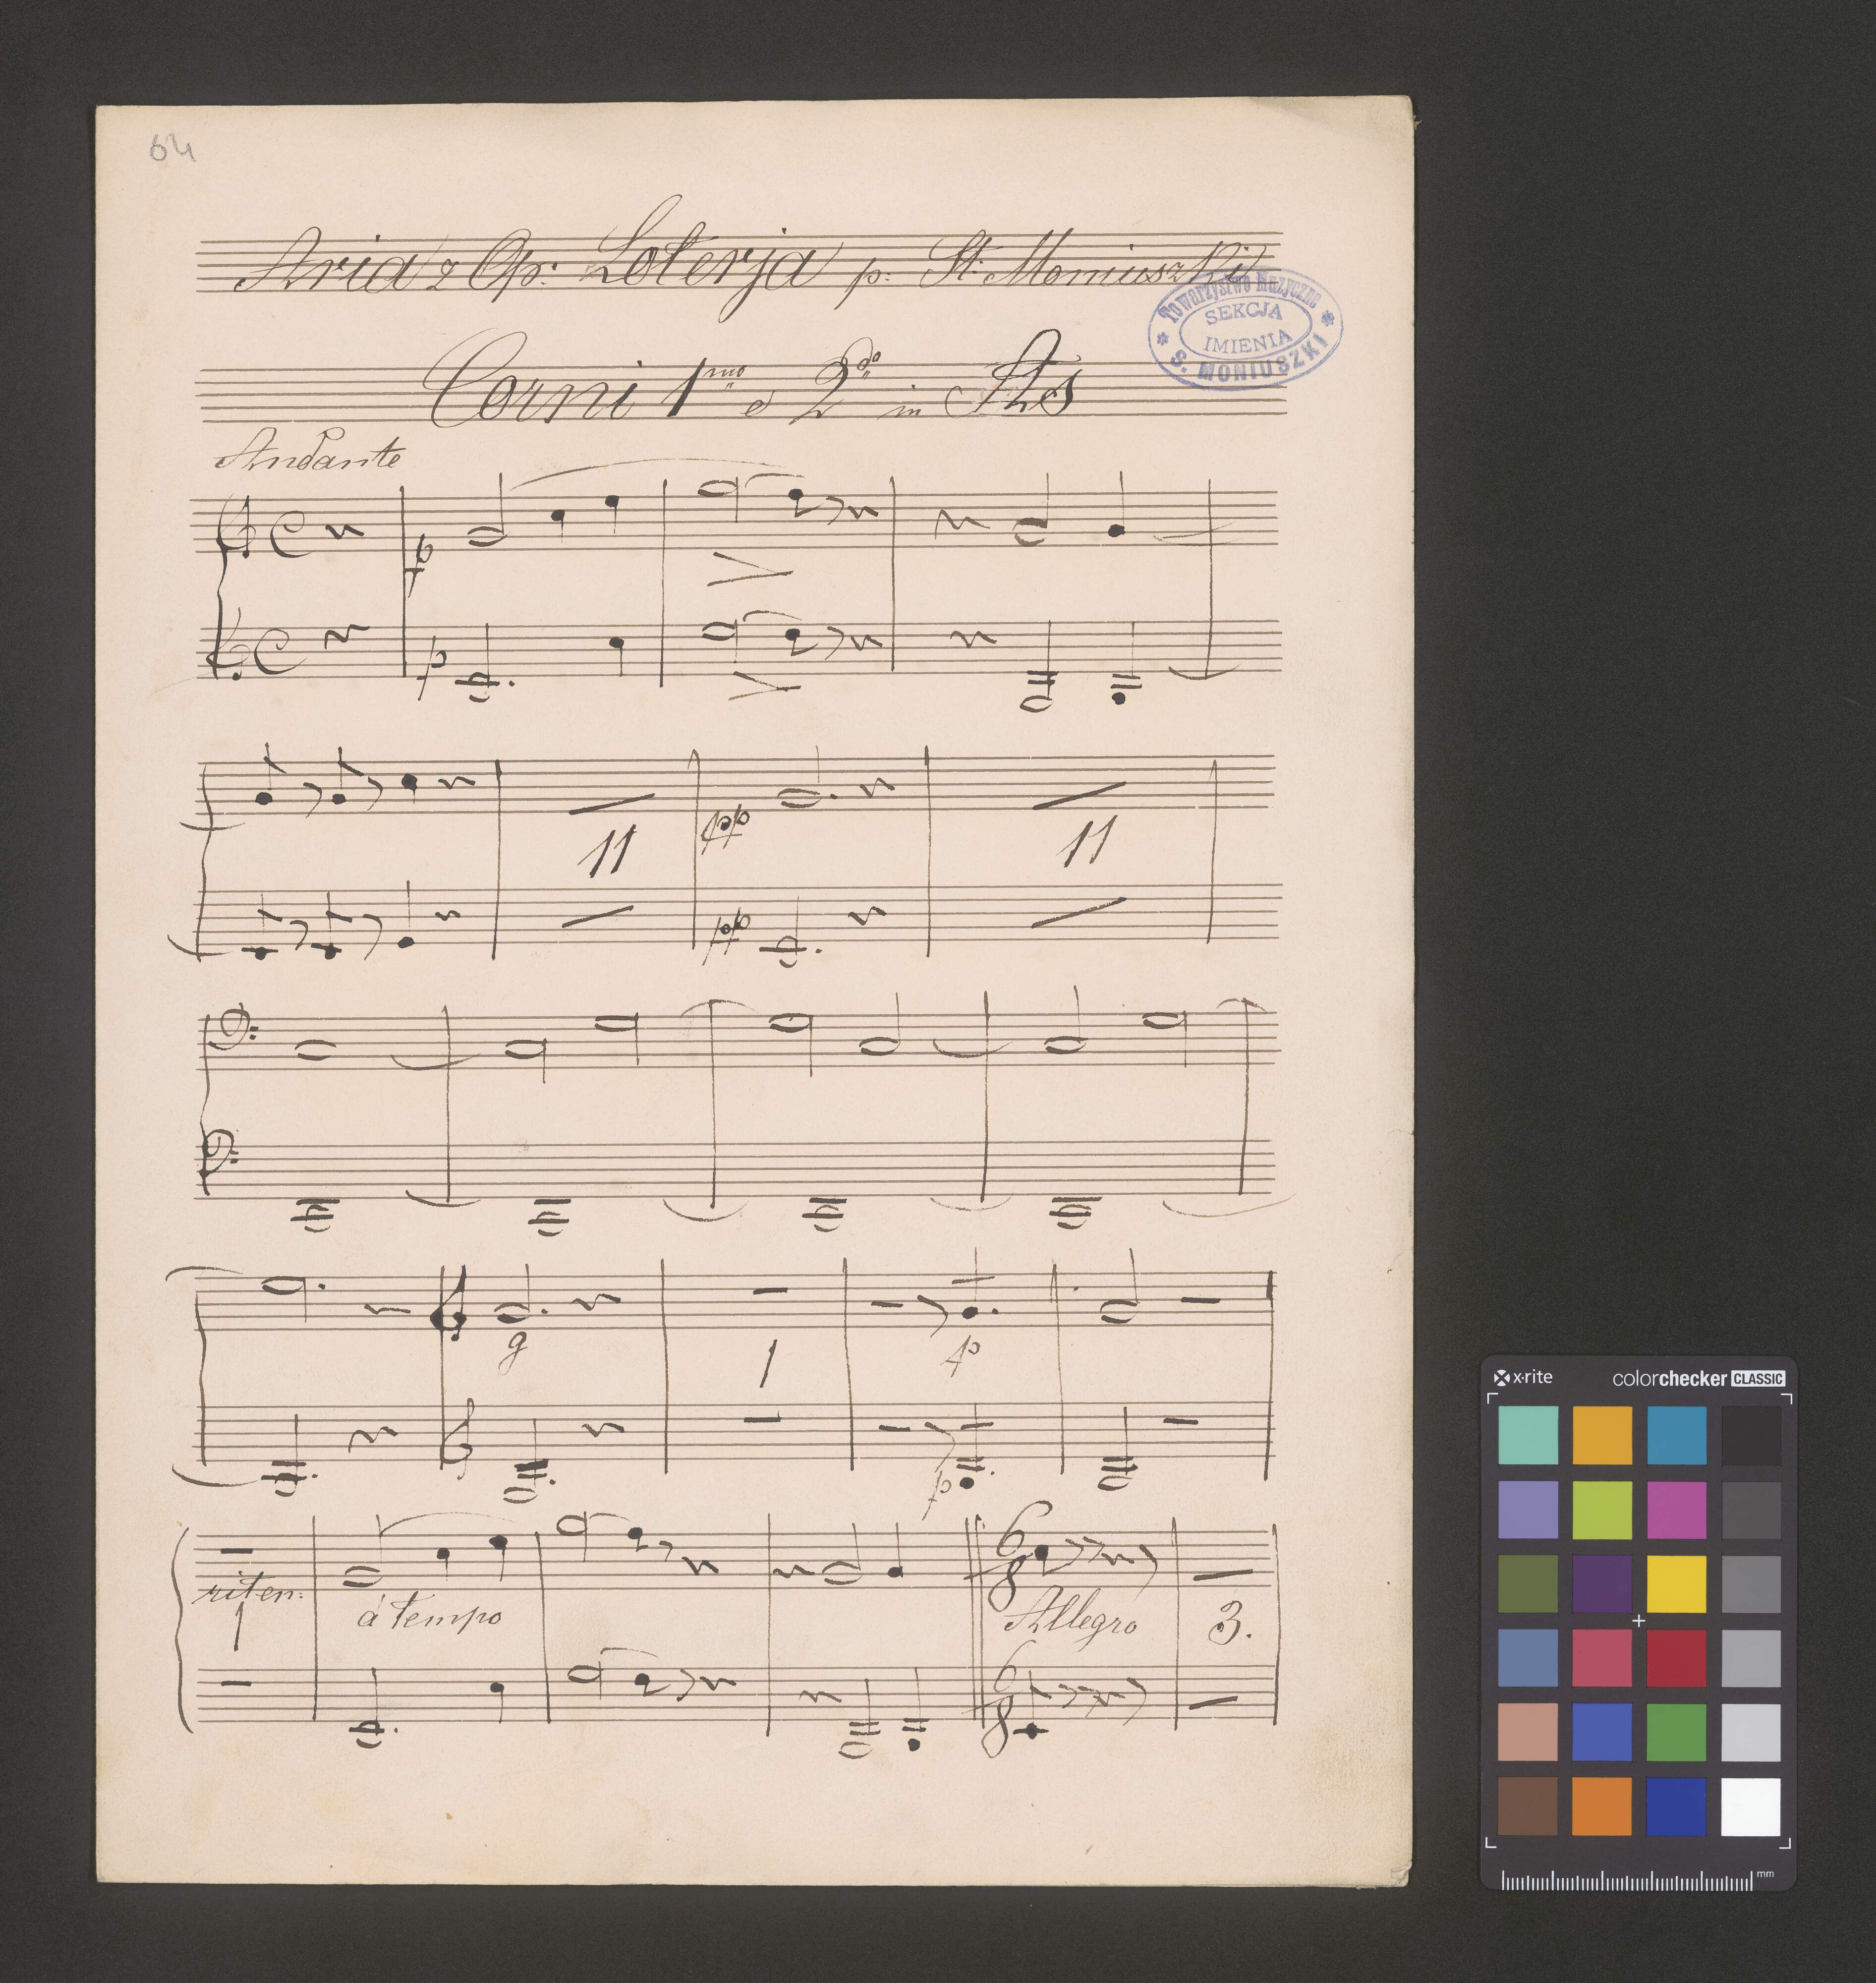 64
Aria z Op: Loterja p: St: Moniuszki
Towarzystwo Muzyczne
SEKCJA
IMIENIA
S. MONIUSZKI
Corni 1mo e 2do in As
Andante
p
p
11
pp
11
pp
g
1
p
p
riten:
à Tempo
1
6
8
Allegro
3.
6
8
x·rite colorchecker CLASSIC
mm